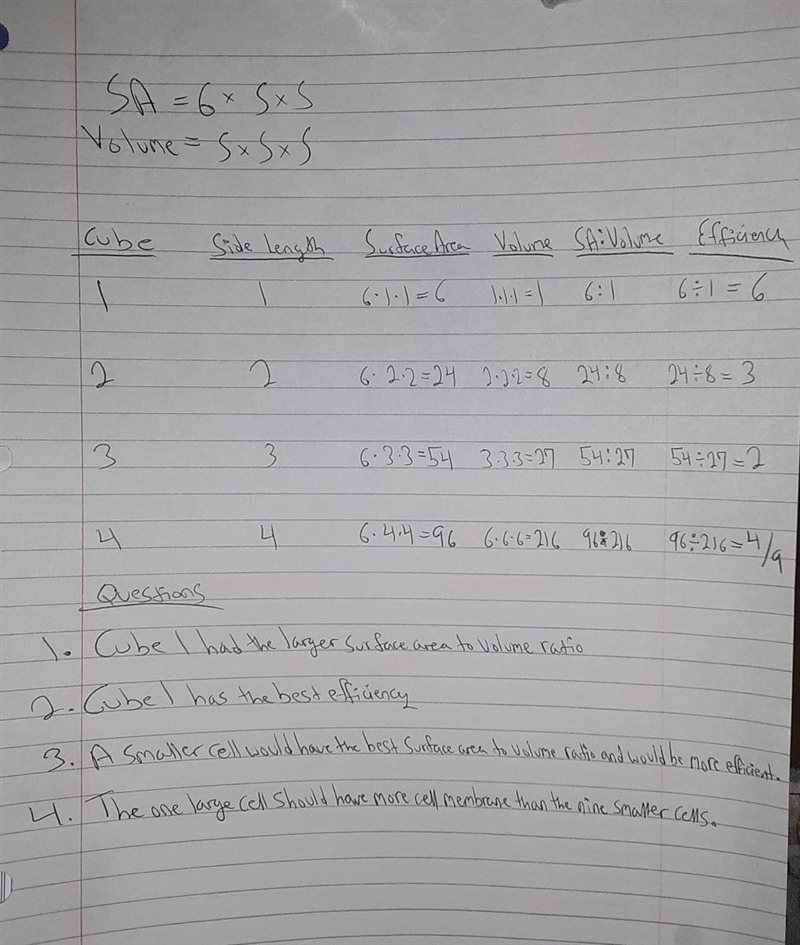 SA = 6 × S × S
Volume = S × S × S
Cube Side length Surface Area Volume SA:Volume Efficiency
1 1 6·1·1=6 1·1·1=1 6:1 6÷1=6
2 2 6·2·2=24 2·2·2=8 24:8 24÷8=3
3 3 6·3·3=54 3·3·3=27 54:27 54÷27=2
4 4 6·4·4=96 6·6·6=216 96:216 96÷216=4/9
Questions
1. Cube 1 had the larger surface area to volume ratio
2. Cube 1 has the best efficiency
3. A smaller cell would have the best surface area to volume ratio and would be more efficient.
4. The one large cell should have more cell membrane than the nine smaller cells.